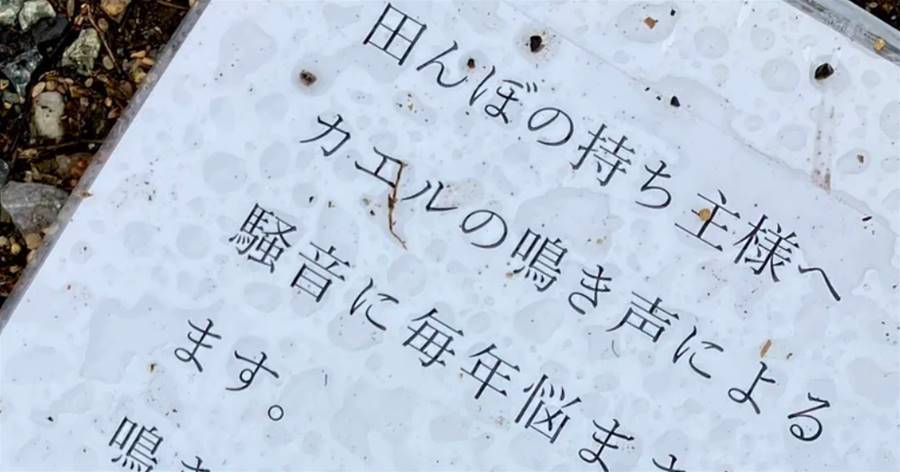 田んぼの持ち主様へ
カエルの鳴き声による
騒音に毎年悩ま
ます。
鳴